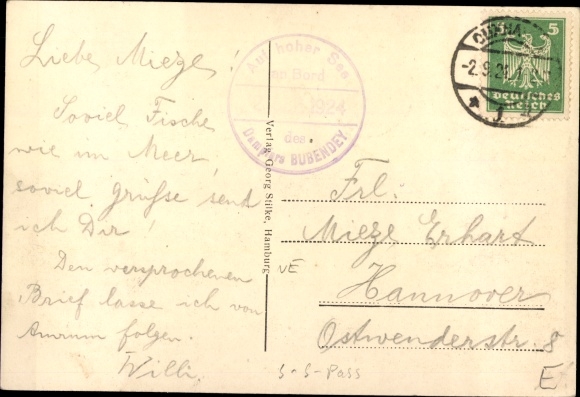 Liebe Mieze!
Soviel Fische
wie im Meer,
soviel grüsse send
ich Dir!
Den versprochenen
Brief lasse ich von
Amrum folgen.
Willi.
Auf hoher See
an Bord
1924
des
Dampfers BUBENDEY
Verlag Georg Stilke, Hamburg
CUXHA
-2.9.24.
* J
5
Deutsches
Reich
Frl.
Mieze Erhart
Hannover
Ostwenderstr. 8
VE
S-S-Pass
E